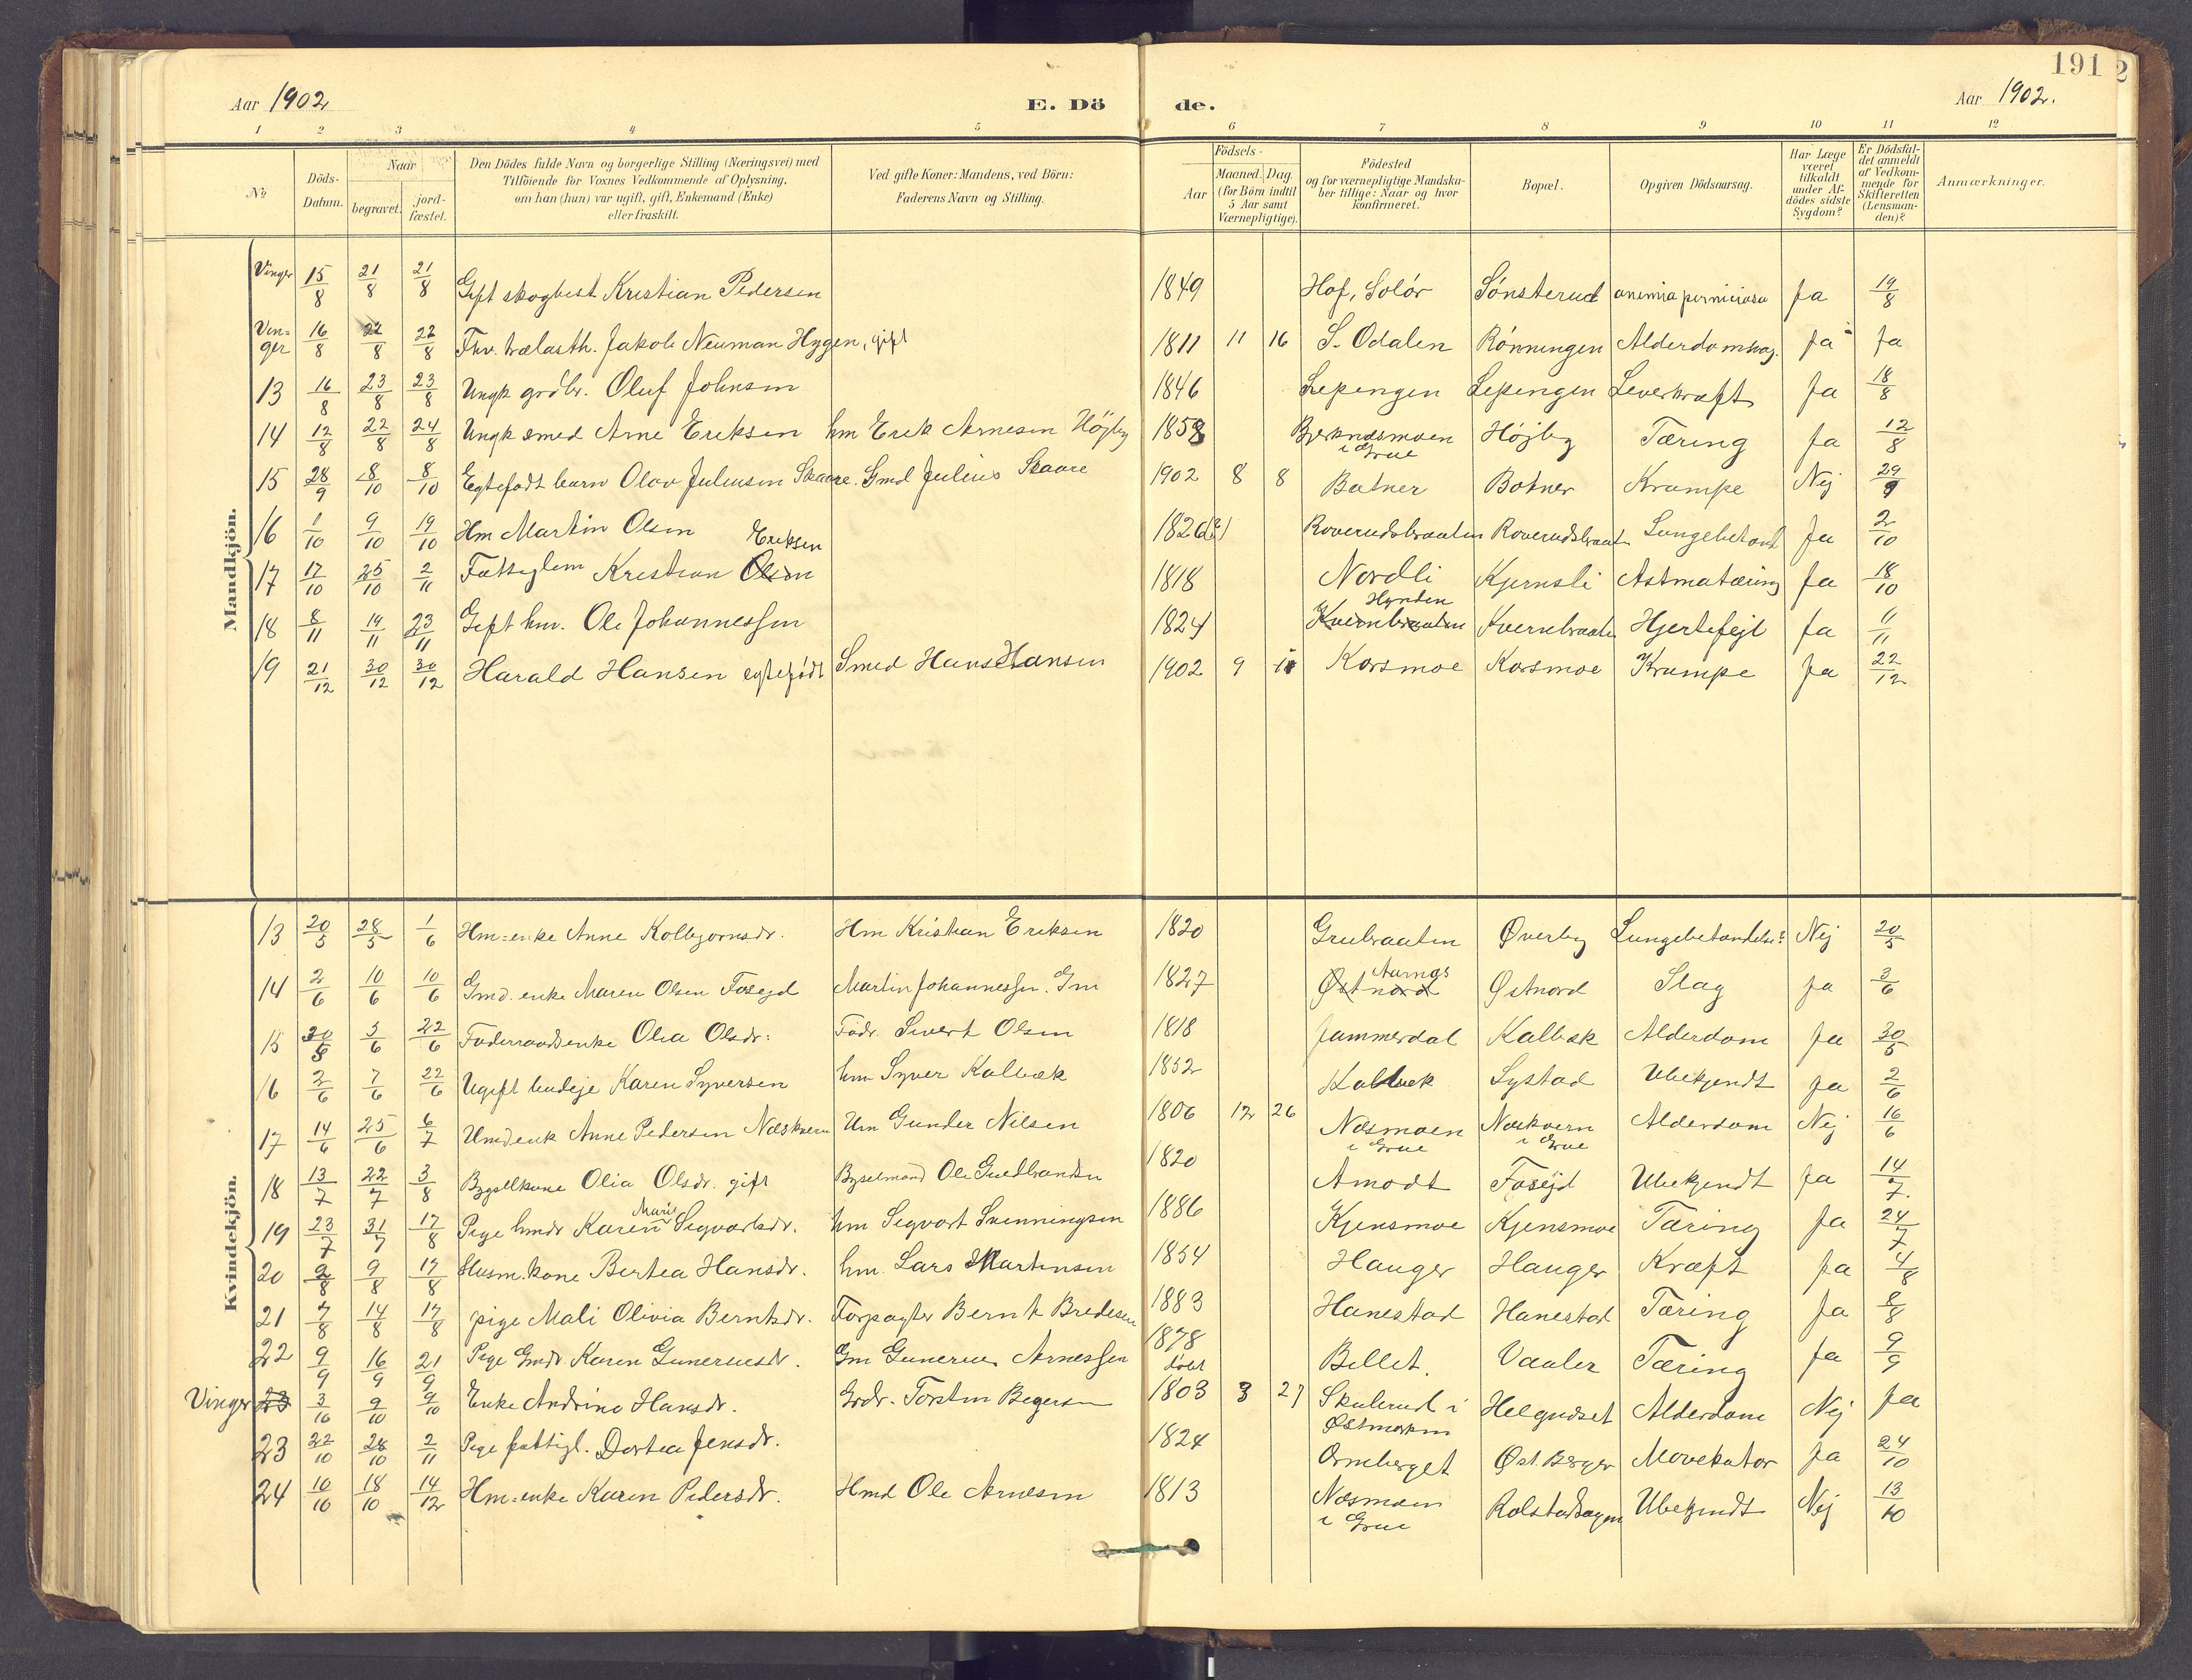 191
2
Aar 1902
E. Dö
de.
Aar 1902.
1 2 3 4 5 6 7 8 9 10 11 12
No
Döds-
Datum.
Naar
begravet.
jord-
fæstet.
Den Dödes fulde Navn og borgerlige Stilling (Næringsvei) med
Tilföiende for Voxnes Vedkommende af Oplysning,
om han (hun) var ugift, gift, Enkemand (Enke)
eller fraskilt.
Ved gifte Koner: Mandens, ved Börn:
Faderens Navn og Stilling.
Födsels-
Aar
Maaned. Dag.
(for Börn indtil
5 Aar samt
Værnepligtige).
Födested
og for værnepligtige Mandska-
ber tillige: Naar og hvor
konfirmeret.
Bopæl.
Opgiven Dödsaarsag.
Har Læge
været
tilkaldt
under Af-
dödes sidste
Sygdom?
Er Dödsfal-
det anmeldt
af Vedkom-
mende for
Skifteretten
(Lensman-
den)?
Anmærkninger.
Mandkjön.
Vinger 15/8 21/8 21/8 Gift skogbest Kristian Pedersen 1849 Hof, Solör Sönsterud anemia perniciosa Ja 19/8
Vin=
ger 16/8 22/8 22/8 Fhv. trælasth. Jakob Neuman Hygen, gift 1811 11 16 S. Odalen Rönningen Alderdomsvag. Ja Ja
13 16/8 23/8 23/8 Ungk grdbr. Oluf Johnsen 1846 Lepengen Lepengen Leverkræft Ja 18/8
14 12/8 22/8 24/8 Ungk smed Arne Eriksen hm Erik Arnesen Höjby 1858 Bjerknæsmoen
i Grue Höjby Tæring Ja 12/8
15 28/9 8/10 8/10 Egtefödt barn Olav Juliusen Skaare. Gmd Julius Skaare 1902 8 8 Botner Botner Krampe Nej 29/9
16 1/10 9/10 19/10 Hm Martin Olsen 1826(?) Roverudsbraaten Roverudsbraaten Lungebetænd Ja 2/10
Eriksen
17 17/10 25/10 2/11 Fattiglem Kristian Olsen 1818 Nordli Kjernsli Astmatæring Ja 18/10
Hynden
18 8/11 19/11 23/11 Gift hm. Ole Johannessen 1824 Kvernbraaten Kvernbraaten Hjertefejl Ja 11/11
19 21/12 30/12 30/12 Harald Hansen egtefödt Smed Hans Hansen 1902 9 Korsmoe Korsmoe Krampe Ja 22/12
Kvindekjön.
13 20/5 28/5 1/6 Hm=enke Anne Kolbjornsdr. Hm Kristian Eriksen 1820 Grubraaten Överby Lungebetændelse? Nej 20/5
Aarnæs
14 2/6 10/6 10/6 Gmd. enke Maren Olsen Foseyd Martin Johannessen. Gm 1827 Östnord Östnord Slag Ja 3/6
15 30/5 5/6 22/6 Föderraadsenke Olea Olsdr: Födr. Sivert Olsen 1818 Jammerdal Kalbæk Alderdom Ja 30/5
16 2/6 7/6 22/6 Ugift budeje Karen Syversen hm Syver Kalbæk 1852 Kalbæk Systad Ubekjendt Ja 2/6
17 14/6 25/6 6/7 Hmdenk Anne Pedersen Næskvern Hm Gunder Nilsen 1806 12 26 Næsmoen
i Grue Næskvern
i Grue Alderdom Nej 16/6
18 13/7 22/7 3/8 Bygselkone Olia Olsdr. gift Bygselmand Ole Gudbrandsen 1820 Amodt Foseyd Ubekjendt Ja 14/7.
Mari
19 23/7 31/7 17/8 Pige hmdr Karen Segvartsdr. hm Segvart Svenningsen 1886 Kjensmoe Kjensmoe Tæring Ja 24/7
20 2/8 9/8 17/8 Husm. kone Bertea Hansdr. hm. Lars Martinsen 1854 Hauger Hauger Kræft Ja 4/8
21 7/8 14/8 17/8 pige Mali Olivia Berntsdr. Forpagter Bernt Bredesen 1883 Hanestad Hanestad Tæring Ja 8/8
22 9/9 16/9 21/9 Pige Gmdr Karen Gunerusdr. Gm Gunerius Arnessen 1878
döbt Bellet. Vaaler Tæring Ja 9/9
Vinger 23 3/10 9/10 9/10 Enke Andrine Hansdr. Grdr. Torsten Begersen 1803 3 27 Skulerud i
Östmarken Helgudset Alderdom Nej Ja
23 22/10 28/10 2/11 Pige fattigl. Dortea Jensdr. 1824 Ormberget Öst. Berger Mavekatar Ja 24/10
24 10/10 18/10 14/12 Hm=enke Karen Pedersdr. Hmd Ole Arnesen 1813 Næsmoen
i Grue Rolstadhagen Ubekjendt Nej 13/10